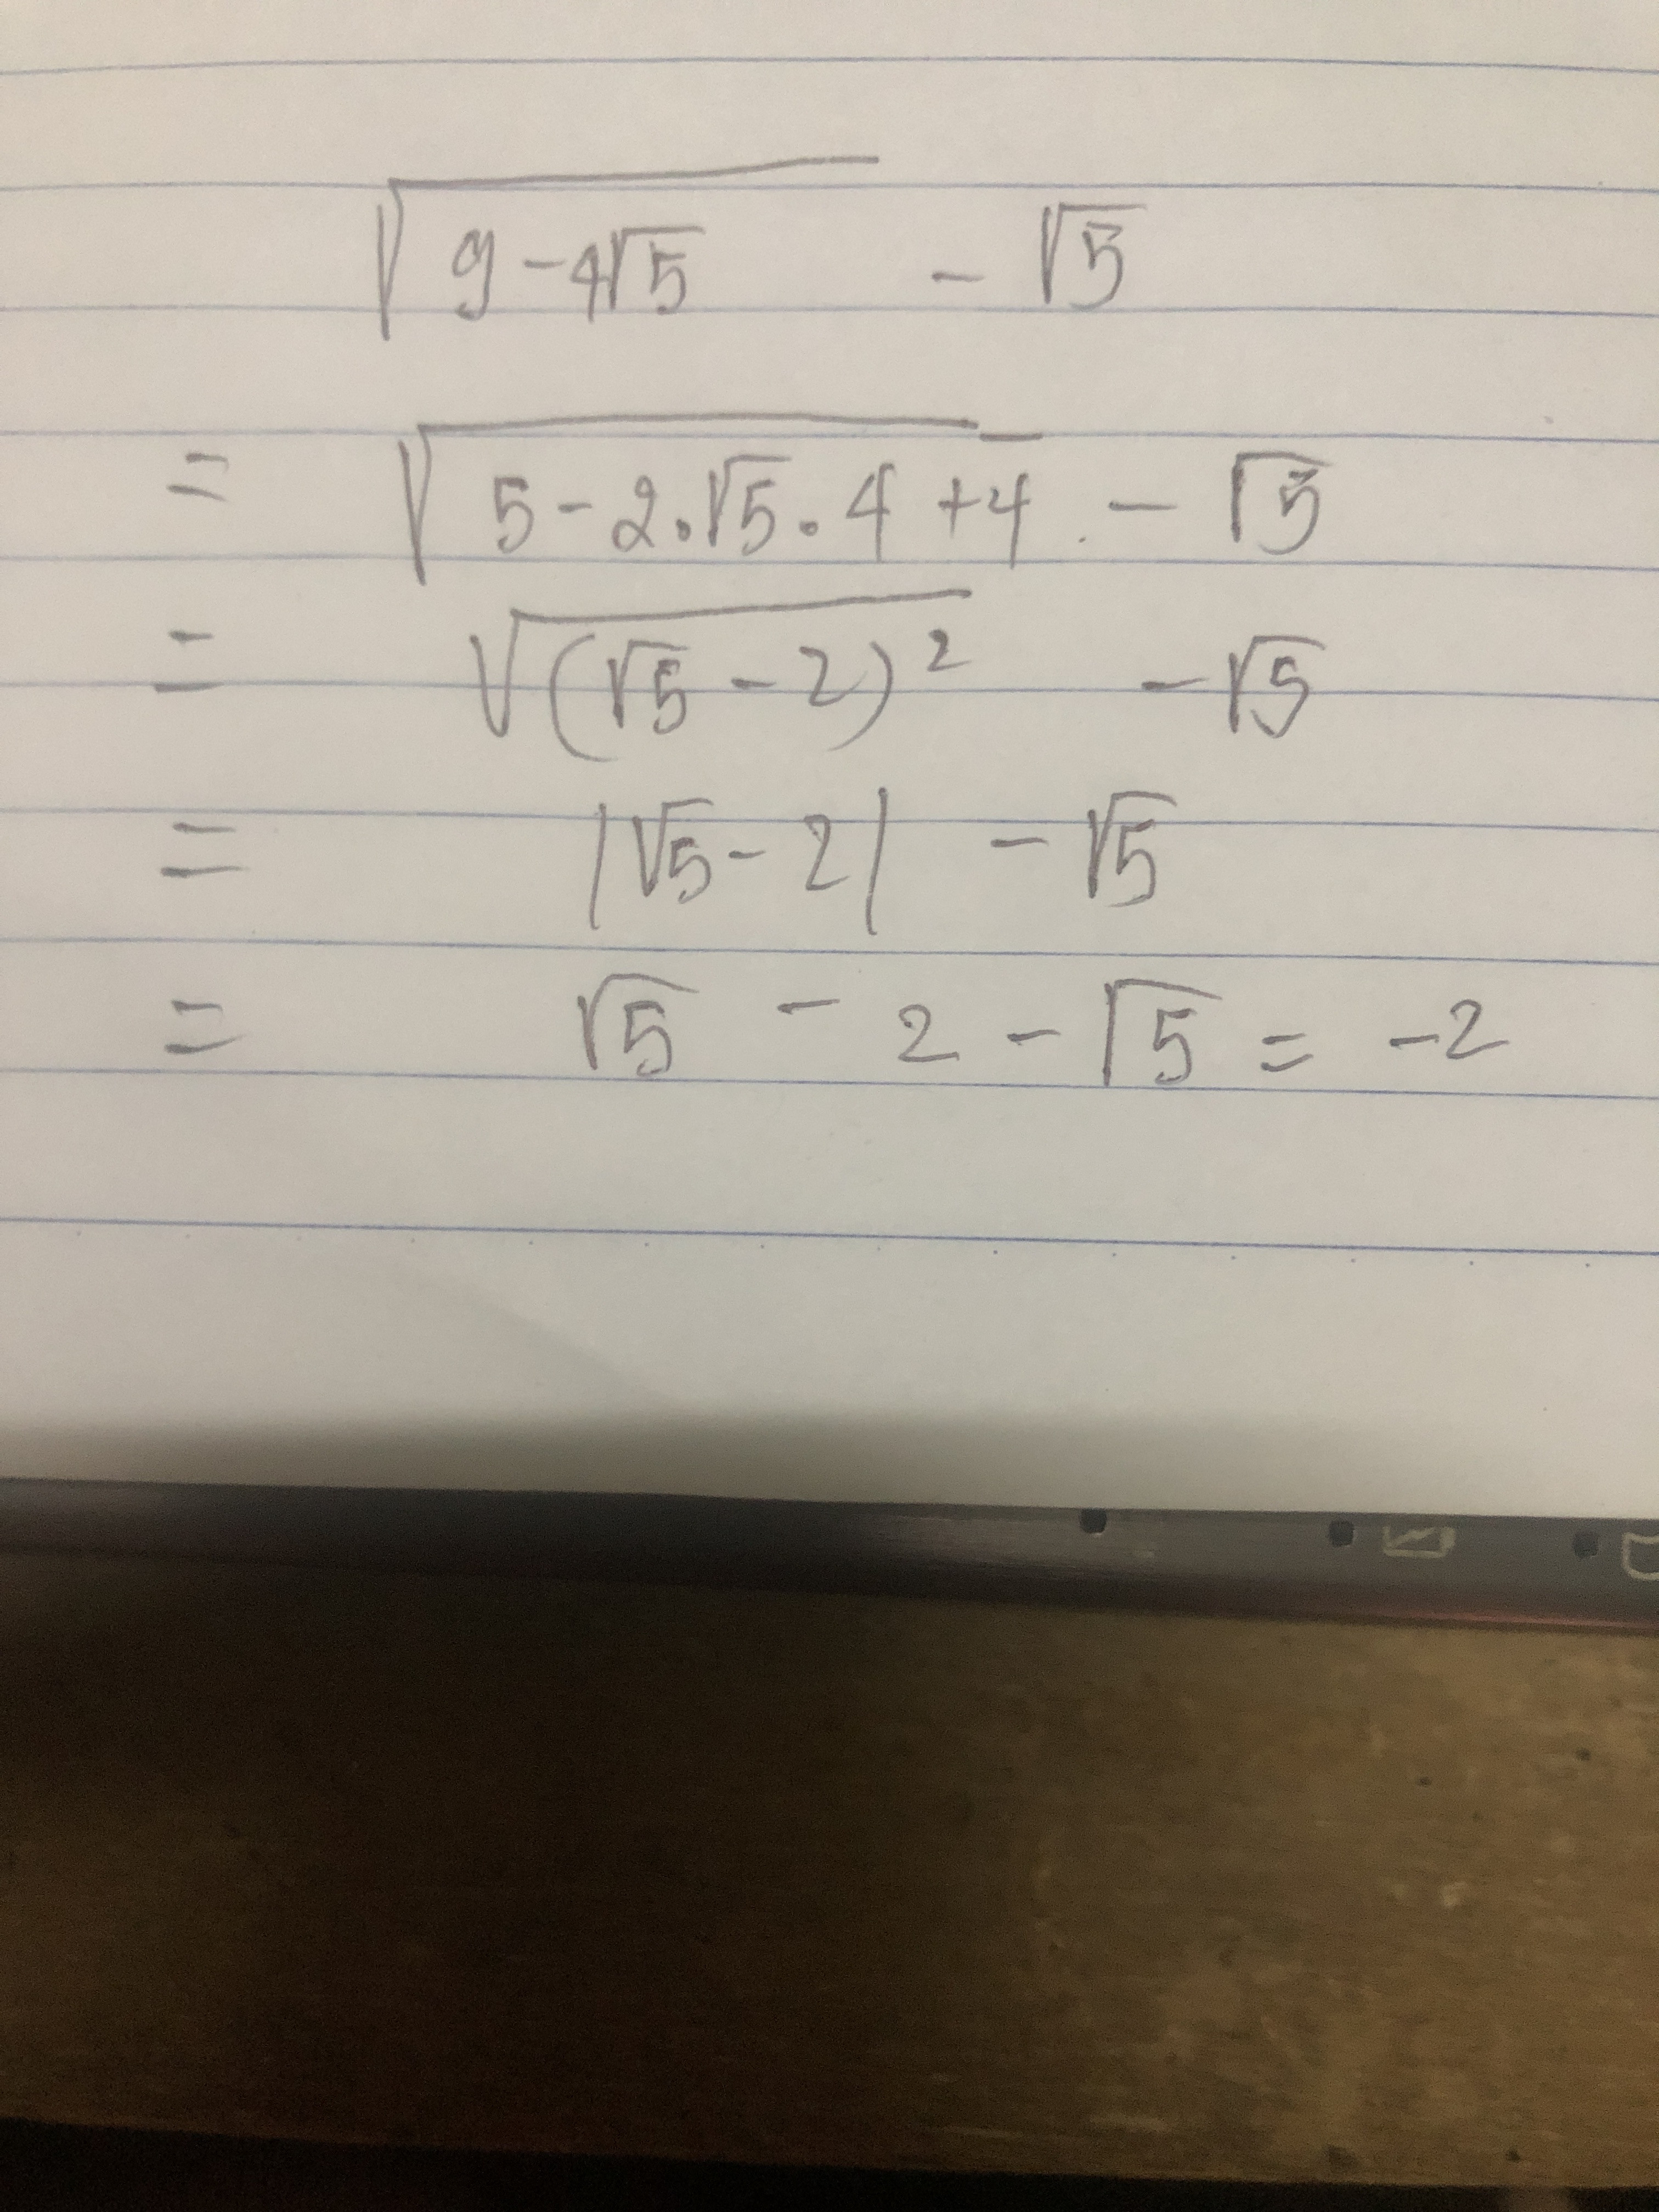 √(9 - 4√5) - √5
= √(5 - 2.√5.4 + 4) - √5
= √((√5 - 2)²) - √5
= |√5 - 2| - √5
= √5 - 2 - √5 = -2